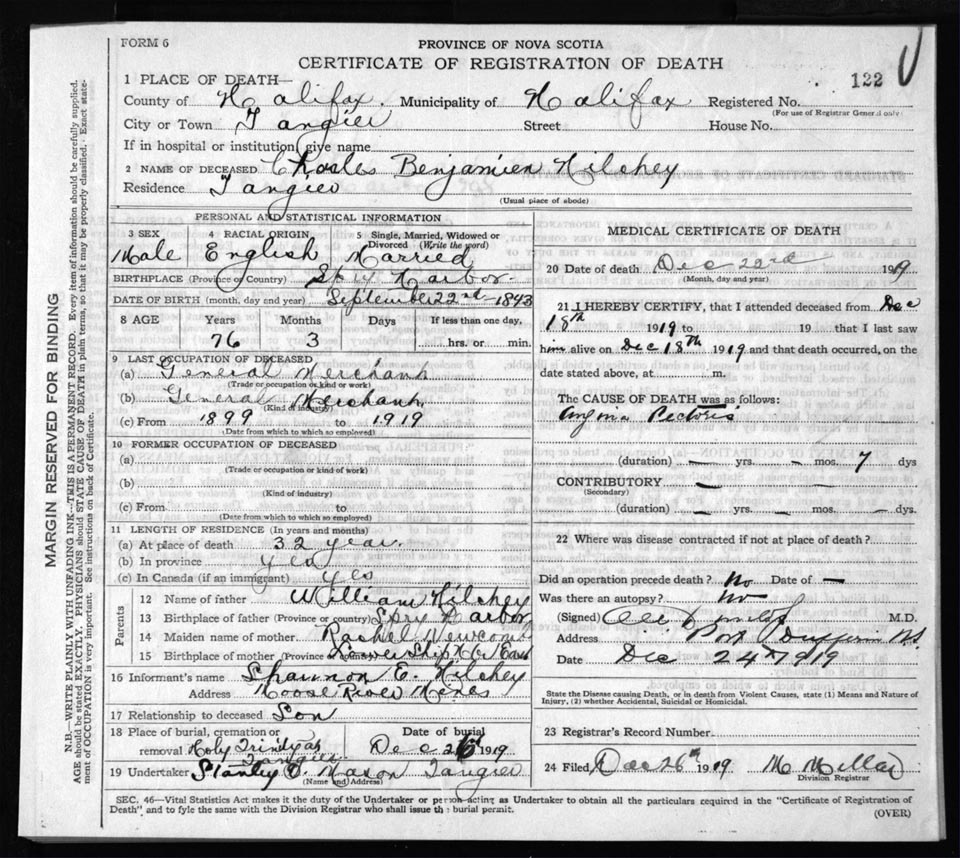 FORM 6
PROVINCE OF NOVA SCOTIA
CERTIFICATE OF REGISTRATION OF DEATH
122
1 PLACE OF DEATH—
County of Halifax. Municipality of Halifax Registered No.
(For use of Registrar General only)
City or Town Tangier Street House No.
If in hospital or institution give name
2 NAME OF DECEASED Charles Benjamien Hilchey
Residence Tangier
(Usual place of abode)
PERSONAL AND STATISTICAL INFORMATION
3 SEX 4 RACIAL ORIGIN 5 Single, Married, Widowed or Divorced (Write the word)
Male English Married
BIRTHPLACE (Province or Country) Spry Harbor
DATE OF BIRTH (month, day and year) September 22nd 1843
8 AGE Years Months Days If less than one day,
76 3 hrs. or min.
9 LAST OCCUPATION OF DECEASED
(a) General Merchant
(Trade or occupation or kind or work)
(b) General Merchant
(Kind of industry)
(c) From 1899 to 1919
(Date from which to which so employed)
10 FORMER OCCUPATION OF DECEASED
(a)
(Trade or occupation or kind of work)
(b)
(Kind of industry)
(c) From to
(Date from which to which so employed)
11 LENGTH OF RESIDENCE (In years and months)
(a) At place of death 32 year.
(b) In province yes
(c) In Canada (if an immigrant) yes
Parents
12 Name of father William Hilchey
13 Birthplace of father (Province or country) Spry Harbor
14 Maiden name of mother Rachel Newcomb
15 Birthplace of mother (Province or country) Lower Ship Hbr East
16 Informant's name Shannon E. Hilchey
Address Moose River Mines
17 Relationship to deceased Son
18 Place of burial, cremation or removal Holy Trinity Tangier
Date of burial Dec 1919
19 Undertaker Stanley Mason Tangier
(Name and Address)
MEDICAL CERTIFICATE OF DEATH
20 Date of death Dec 22nd 1919
(Month, day and year)
21 I HEREBY CERTIFY, that I attended deceased from Dec
18th 1919 to 19 that I last saw
him alive on Dec 18th 1919 and that death occurred, on the
date stated above, at m.
The CAUSE OF DEATH was as follows:
Angina Pectoris
(duration) — yrs. - mos. 7 dys
CONTRIBUTORY — —
(Secondary)
(duration) — yrs. — mos. — dys.
22 Where was disease contracted if not at place of death?
Did an operation precede death? No Date of —
Was there an autopsy? No
(Signed) M.D.
Address Port Dufferin NS.
Date Dec 24th 1919
State the Disease causing Death, or in death from Violent Causes, state (1) Means and Nature of
Injury, (2) whether Accidental, Suicidal or Homicidal.
23 Registrar's Record Number
24 Filed Dec 26th 1919 M Millar
Division Registrar
SEC. 46—Vital Statistics Act makes it the duty of the Undertaker or person acting as Undertaker to obtain all the particulars required in the "Certificate of Registration of
Death" and to fyle the same with the Division Registrar who shall issue the burial permit.
(OVER)
MARGIN RESERVED FOR BINDING
N.B.—WRITE PLAINLY WITH UNFADING INK—THIS IS A PERMANENT RECORD. Every item of information should be carefully supplied.
AGE should be stated EXACTLY. PHYSICIANS should STATE CAUSE OF DEATH in plain terms, so that it may be properly classified. Exact state-
ment of OCCUPATION is very important. See instructions on back of Certificate.